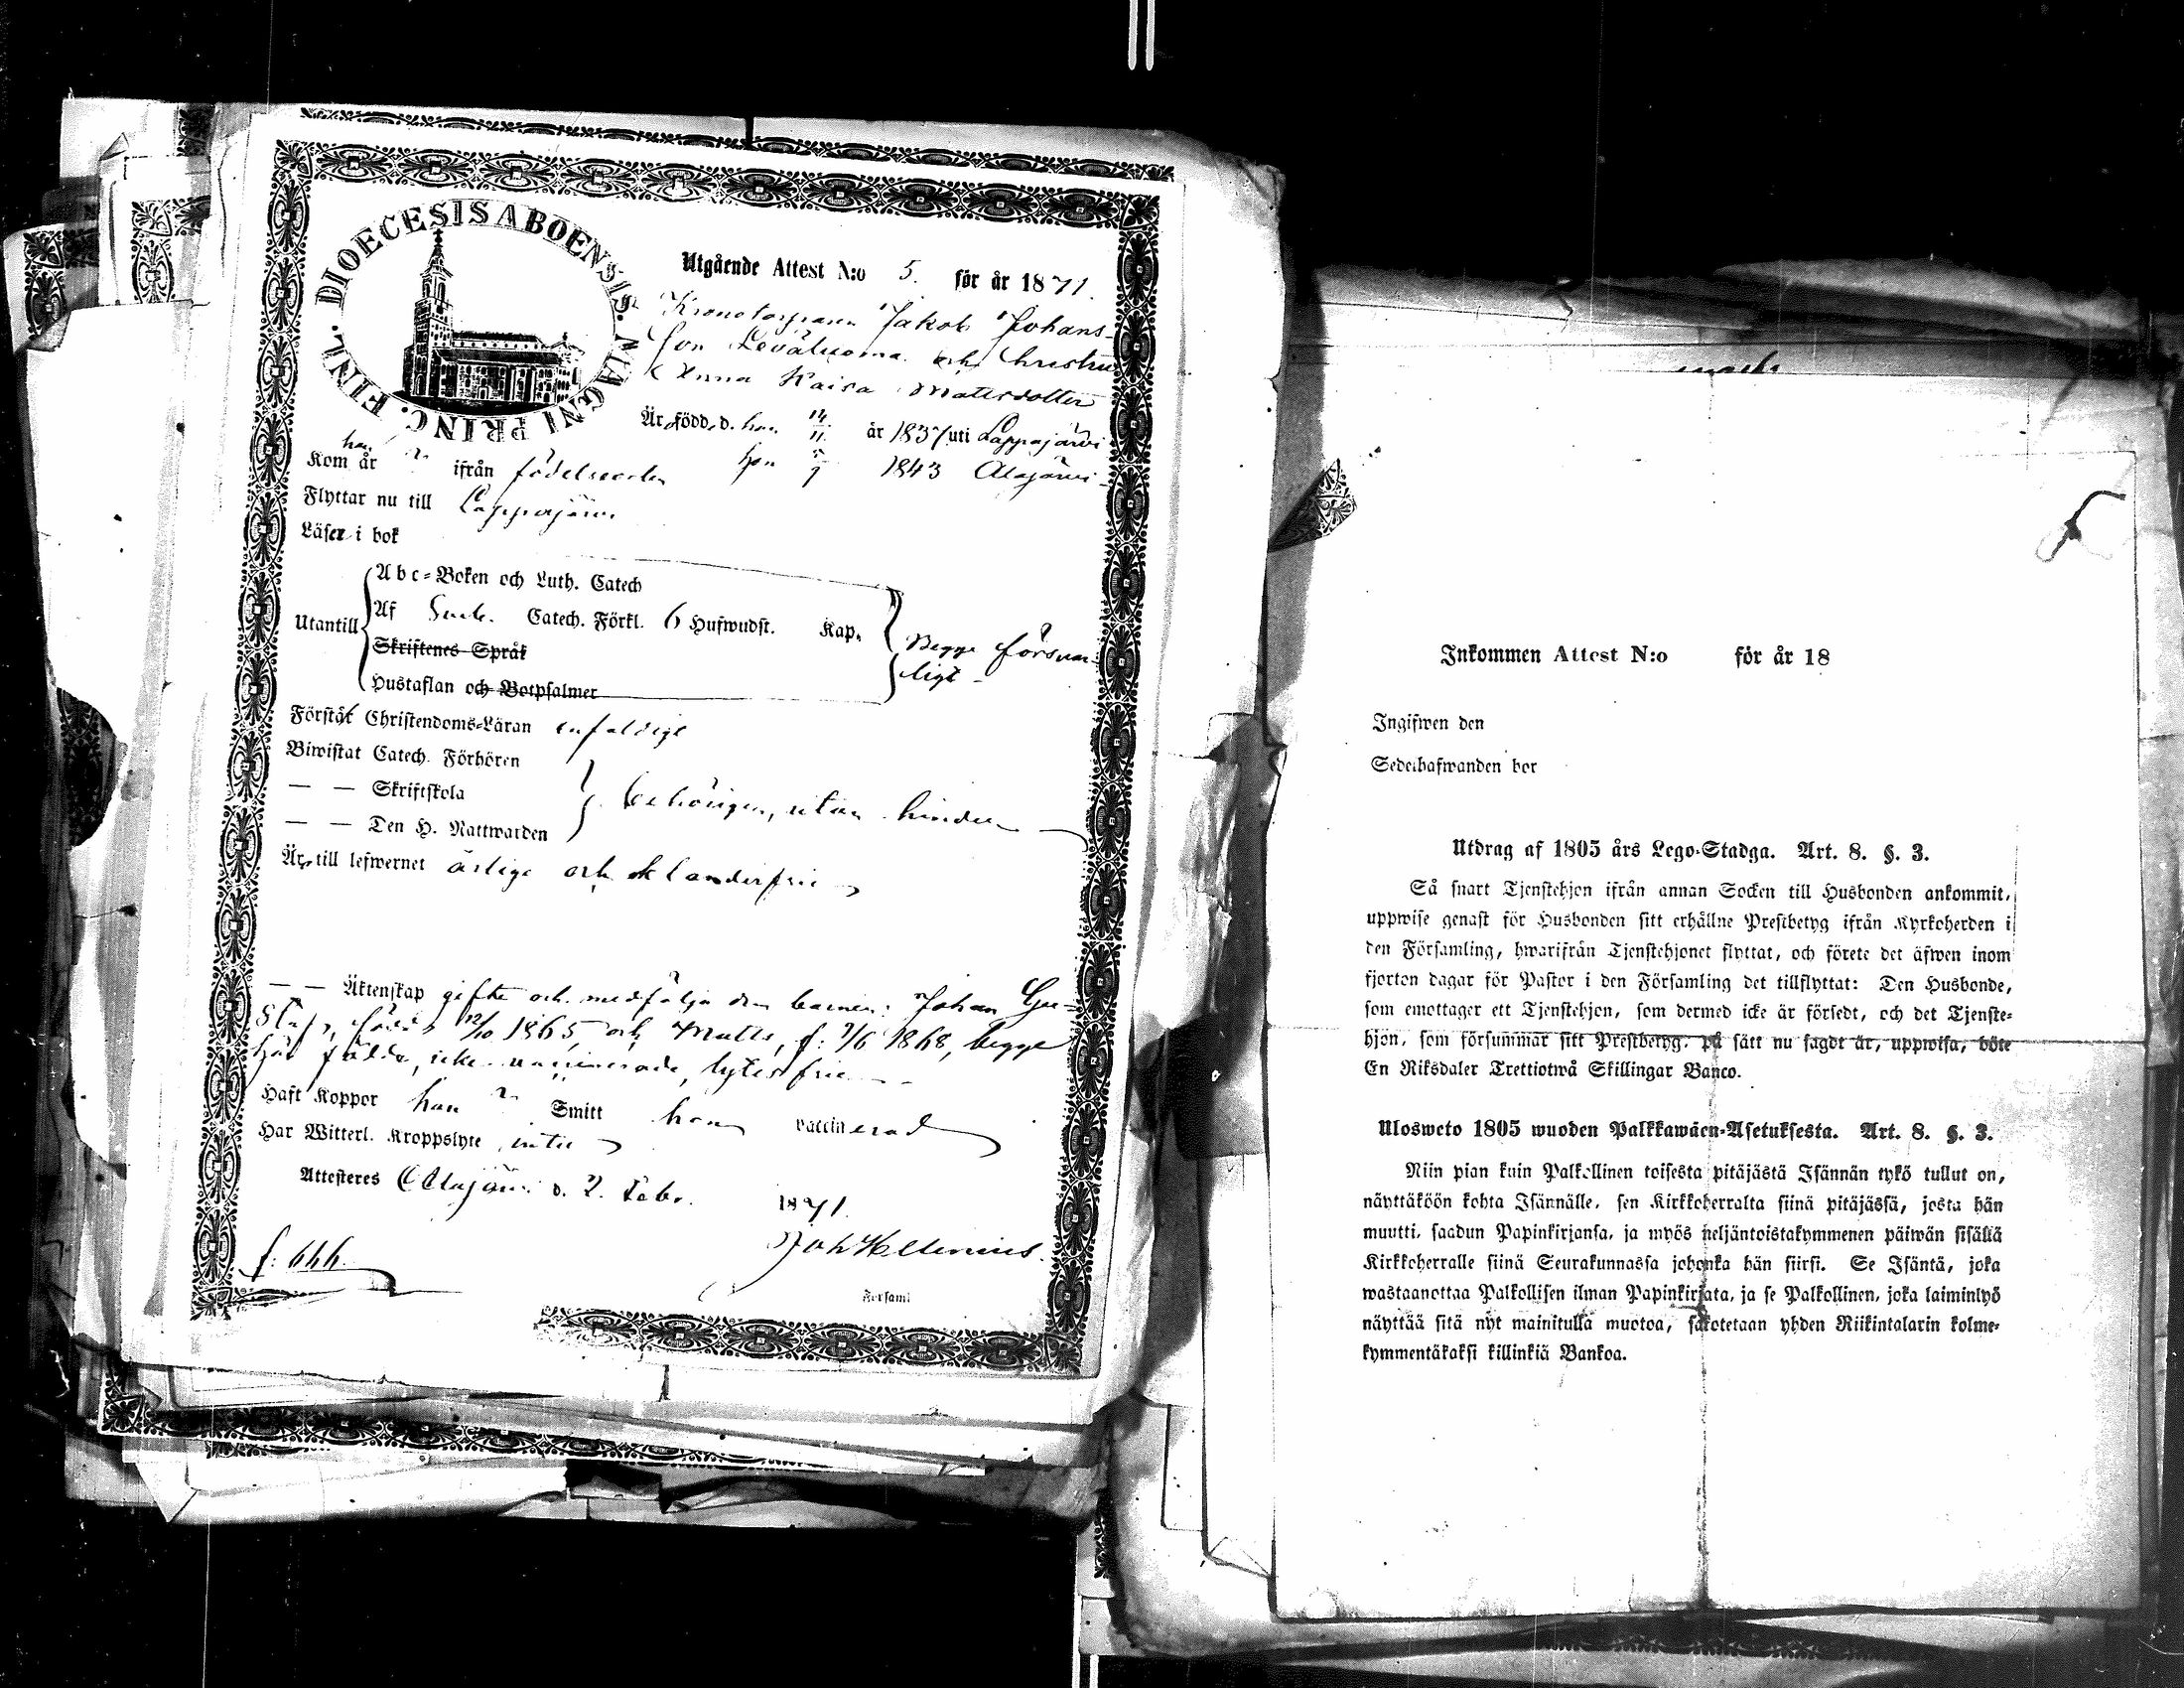 DIOECESIS ABOENSIS. MAGNI PRINC. FINL.
Utgående Attest N:o 5. för år 1871.
Kronotorparen Jakob Johans-
son Leväluoma och hustru
Anna Kaisa Mattsdotter
Är födde, d. han 14/11 år 1837 uti Lappajärvi
hon 1843 Alajärvi
han
Kom år ? ifrån födelseorten
Flyttar nu till Lappajärvi
Läser i bok
Utantill
Abc-Boken och Luth. Catech
Af Catech. Förkl. 6 Hufwudst. Kap.
Skriftenes Språk
Hustaflan och Botpsalmer
Begge försvar-
ligt
Förstå Christendoms-Läran enfaldigt
Biwistat Catech. Förhören
— — Skriftskola
— — Den H. Nattwarden
behörigen, utan hinder
Är till lefwernet ärlige och oklanderlige
— — Äktenskap gifte och medfölja dem barnen: Johan Gu-
staf, född 12/10 1865, och Matts, f: 7/6 1868, begge
här födda, icke vaccinerade, lytesfrie
Haft Koppor han ? Smitt hon vaccinerad
Har Witterl. Kroppslyte intet
Attesteres Alajärvi d. 2. Febr. 1871.
Joh Hellenius.
f. 666.
Församl
Inkommen Attest N:o för år 18
Ingifwen den
Sedelhafwanden bor
Utdrag af 1805 års Lego-Stadga. Art. 8. §. 3.
Så snart Tjenstehjon ifrån annan Socken till Husbonden ankommit,
uppwise genast för Husbonden sitt erhållne Prestbetyg ifrån Kyrkoherden i
den Församling, hwarifrån Tjenstehjonet flyttat, och förete det äfwen inom
fjorton dagar för Pastor i den Församling det tillflyttat: Den Husbonde,
som emottager ett Tjenstehjon, som dermed icke är försedt, och det Tjenste-
hjon, som försummar sitt Prestbetyg, på sätt nu sagdt är, uppwisa, böte
En Riksdaler Trettiotwå Skillingar Banco.
Ulosweto 1805 wuoden Palkkawäen-Asetuksesta. Art. 8. §. 3.
Niin pian kuin Palkollinen toisesta pitäjästä Isännän tykö tullut on,
näyttäköön kohta Isännälle, sen Kirkkoherralta siinä pitäjässä, josta hän
muutti, saadun Papinkirjansa, ja myös neljäntoistakymmenen päiwän sisällä
Kirkkoherralle siinä Seurakunnassa johonka hän siirsi. Se Isäntä, joka
wastaanottaa Palkollisen ilman Papinkirjata, ja se Palkollinen, joka laiminlyö
näyttää sitä nyt mainitulla muotoa, sakotetaan yhden Riikintalarin kolme-
kymmentäkaksi killinkiä Bankoa.